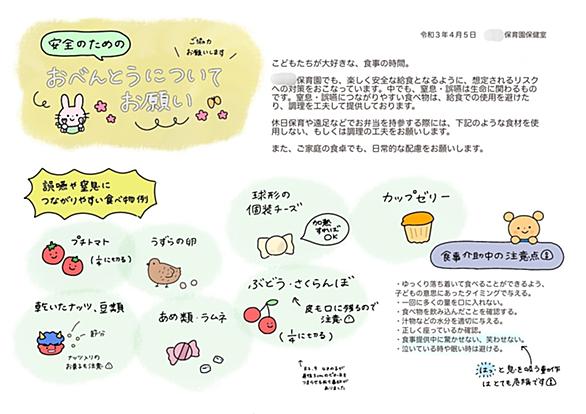 安全のための
おべんとうについて
お願い
ご協力
お願いします
令和3年4月5日
保育園保健室
こどもたちが大好きな、食事の時間。
保育園でも、楽しく安全な給食となるように、想定されるリスク
への対策をおこなっています。中でも、窒息・誤嚥は生命に関わるもの
です。窒息・誤嚥につながりやすい食べ物は、給食での使用を避けた
り、調理を工夫して提供しております。
休日保育や遠足などでお弁当を持参する際には、下記のような食材を使
用しない、もしくは調理の工夫をお願いします。
また、ご家庭の食卓でも、日常的な配慮をお願いします。
誤嚥や窒息に
つながりやすい食べ物例
プチトマト
(1/4に切る)
うずらの卵
球形の
個装チーズ
加熱
すれば
OK
カップゼリー
乾いたナッツ、豆類
節分
ナッツ入りの
お菓子も注意!
あめ類・ラムネ
ぶどう・さくらんぼ
皮も口に残るので
注意!
(1/4に切る)
食事介助中の注意点!
・ゆっくり落ち着いて食べることができるよう、
子どもの意思にあったタイミングで与える。
・一回に多くの量を口に入れない。
・食べ物を飲み込んだことを確認する。
・汁物などの水分を適切に与える。
・正しく座っているか確認。
・食事提供中に驚かせない、笑わせない。
・泣いている時や眠い時は避ける。
はっと息を吸う動作
はとても危険です!